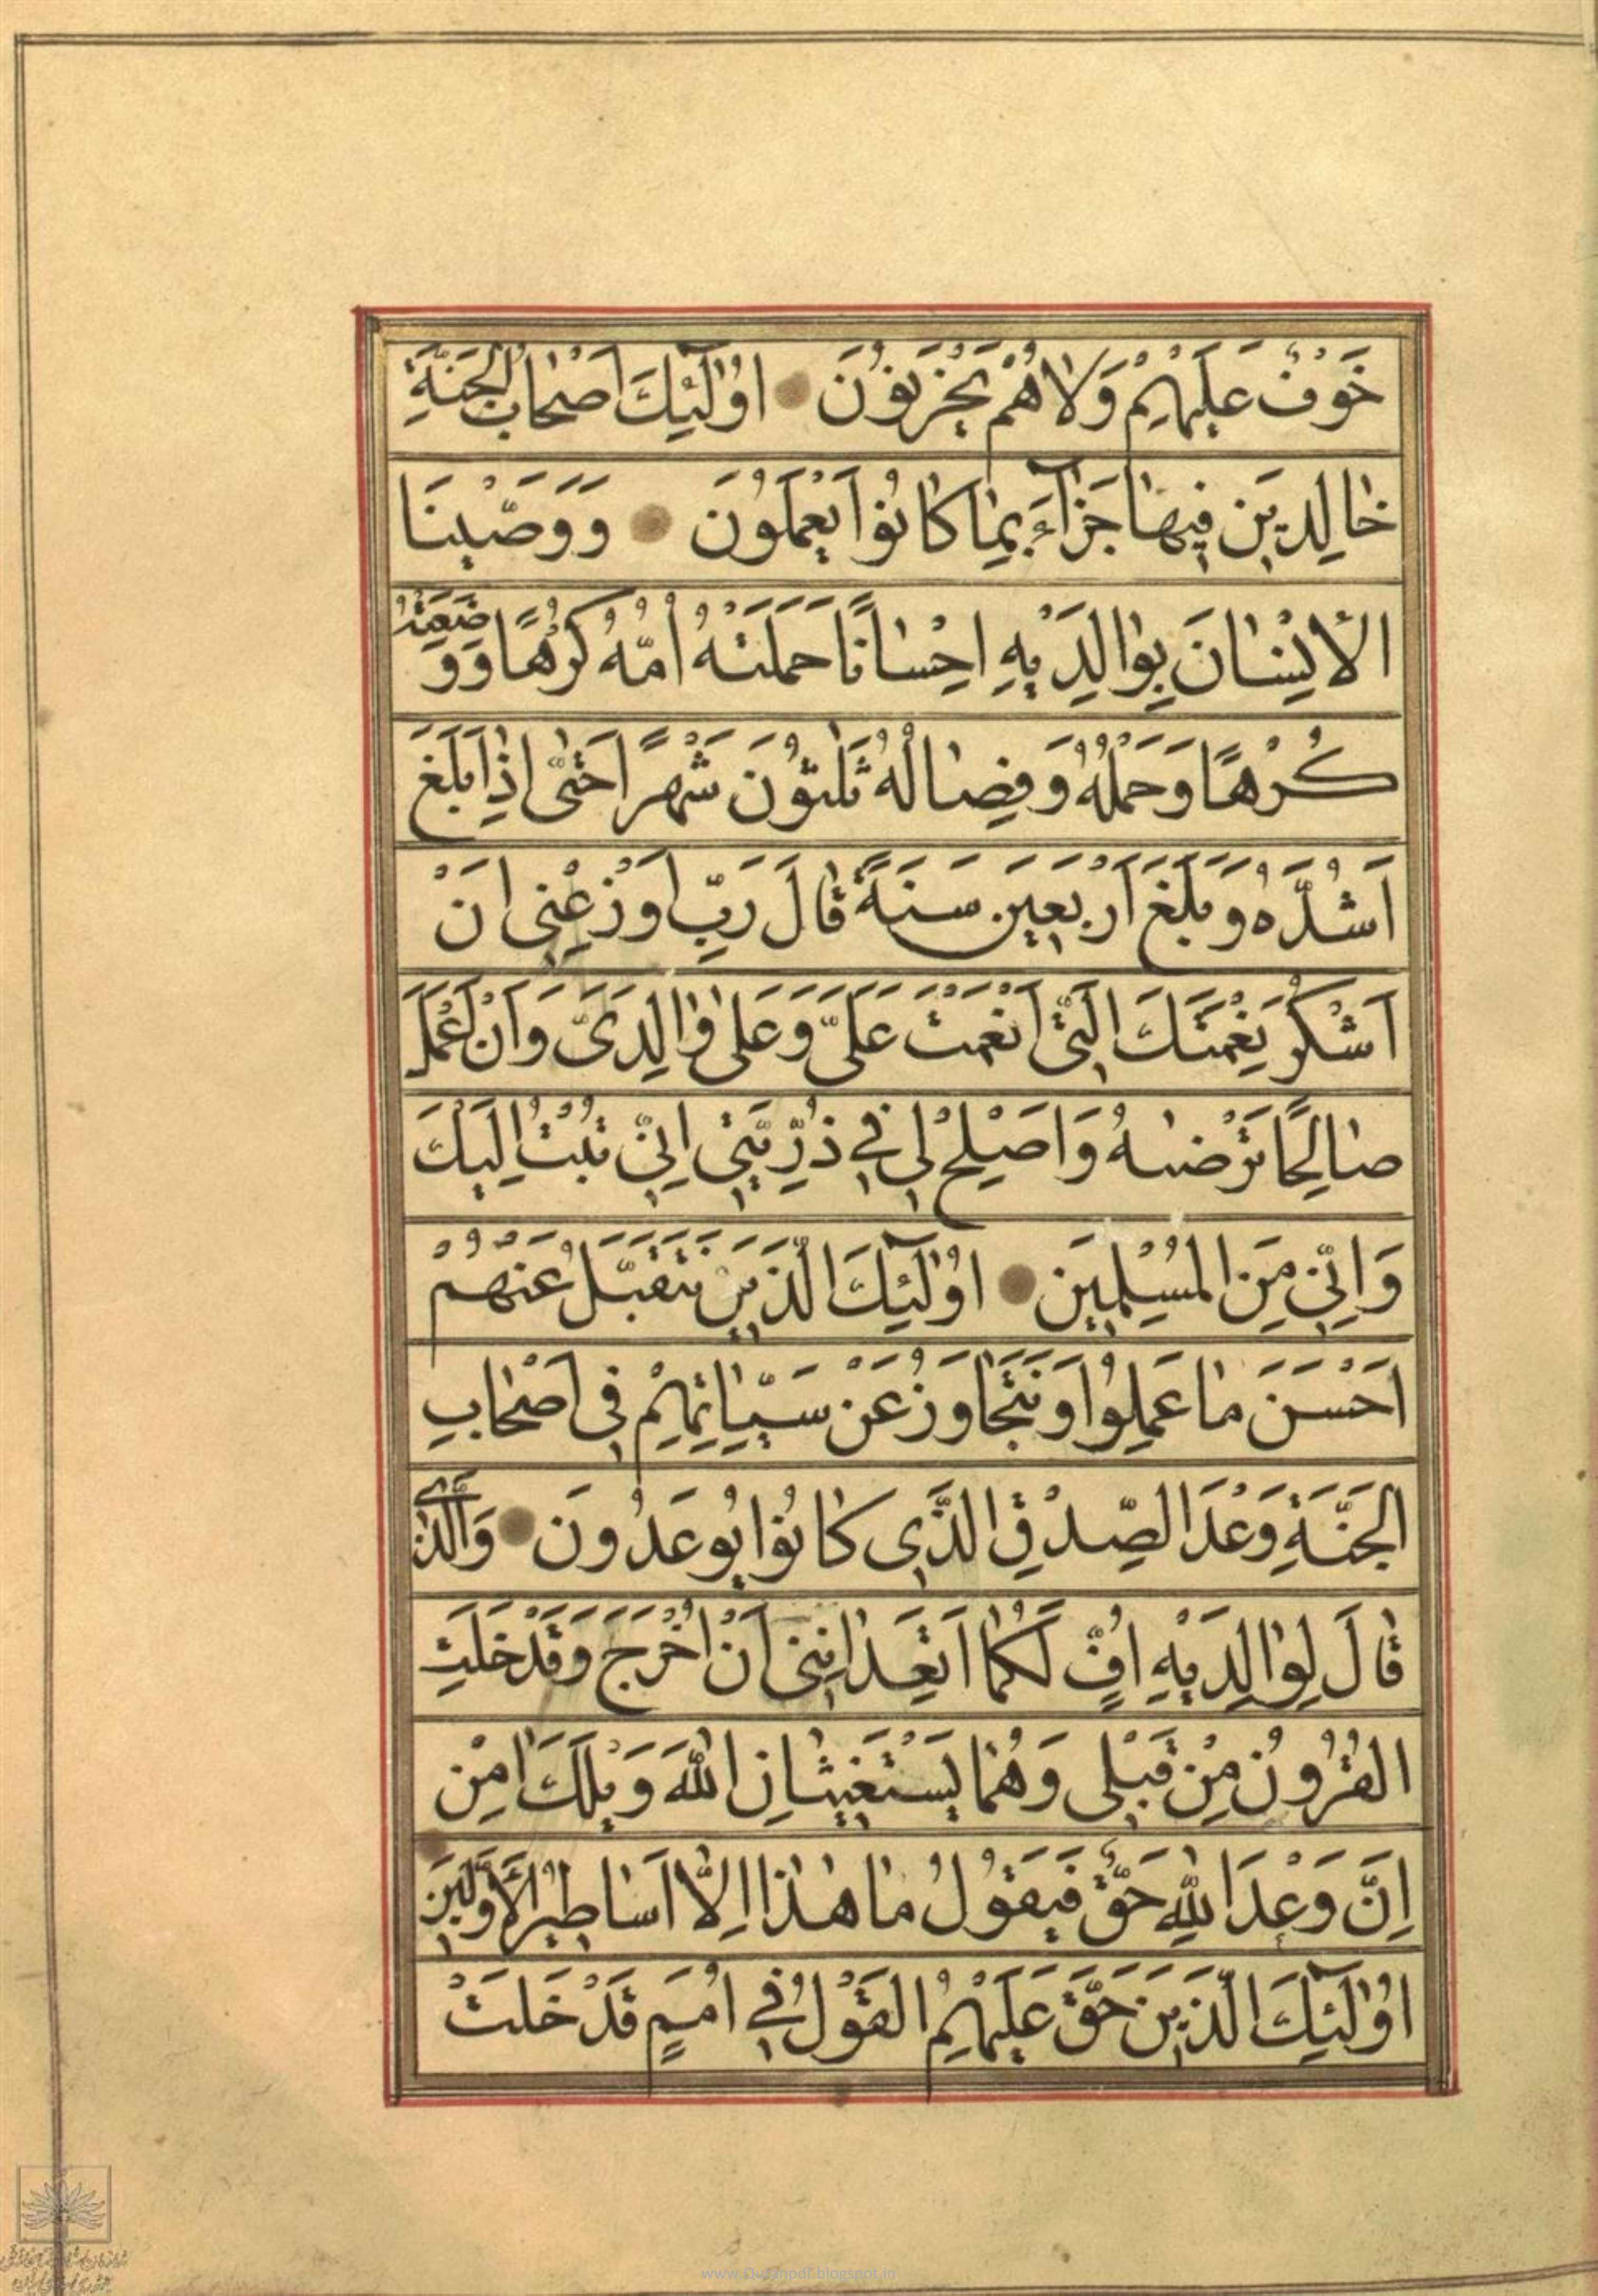 خَوْفٌ عَلَيْهِمْ وَلَا هُمْ يَحْزَنُونَ اُولٰٓئِكَ اَصْحَابُ الْجَنَّةِ
خَالِدِينَ فِيهَا جَزَآءً بِمَا كَانُوا يَعْمَلُونَ وَوَصَّيْنَا
الْاِنْسَانَ بِوَالِدَيْهِ اِحْسَانًا حَمَلَتْهُ اُمُّهُ كُرْهًا وَوَضَعَتْهُ
كُرْهًا وَحَمْلُهُ وَفِصَالُهُ ثَلٰثُونَ شَهْرًا حَتّٰى اِذَا بَلَغَ
اَشُدَّهُ وَبَلَغَ اَرْبَعِينَ سَنَةً قَالَ رَبِّ اَوْزِعْنِى اَنْ
اَشْكُرَ نِعْمَتَكَ الَّتِى اَنْعَمْتَ عَلَىَّ وَعَلٰى وَالِدَىَّ وَاَنْ اَعْمَلَ
صَالِحًا تَرْضٰيهُ وَاَصْلِحْ لِى فِى ذُرِّيَّتِى اِنِّى تُبْتُ اِلَيْكَ
وَاِنِّى مِنَ الْمُسْلِمِينَ اُولٰٓئِكَ الَّذِينَ نَتَقَبَّلُ عَنْهُمْ
اَحْسَنَ مَا عَمِلُوا وَنَتَجَاوَزُ عَنْ سَيِّاٰتِهِمْ فِى اَصْحَابِ
الْجَنَّةِ وَعْدَ الصِّدْقِ الَّذِى كَانُوا يُوعَدُونَ وَالَّذِى
قَالَ لِوَالِدَيْهِ اُفٍّ لَكُمَا اَتَعِدَانِنِى اَنْ اُخْرَجَ وَقَدْ خَلَتِ
الْقُرُونُ مِنْ قَبْلِى وَهُمَا يَسْتَغِيثَانِ اللّٰهَ وَيْلَكَ اٰمِنْ
اِنَّ وَعْدَ اللّٰهِ حَقٌّ فَيَقُولُ مَا هٰذَا اِلَّا اَسَاطِيرُ الْاَوَّلِينَ
اُولٰٓئِكَ الَّذِينَ حَقَّ عَلَيْهِمُ الْقَوْلُ فِى اُمَمٍ قَدْ خَلَتْ
www.Quranpdf.blogspot.in